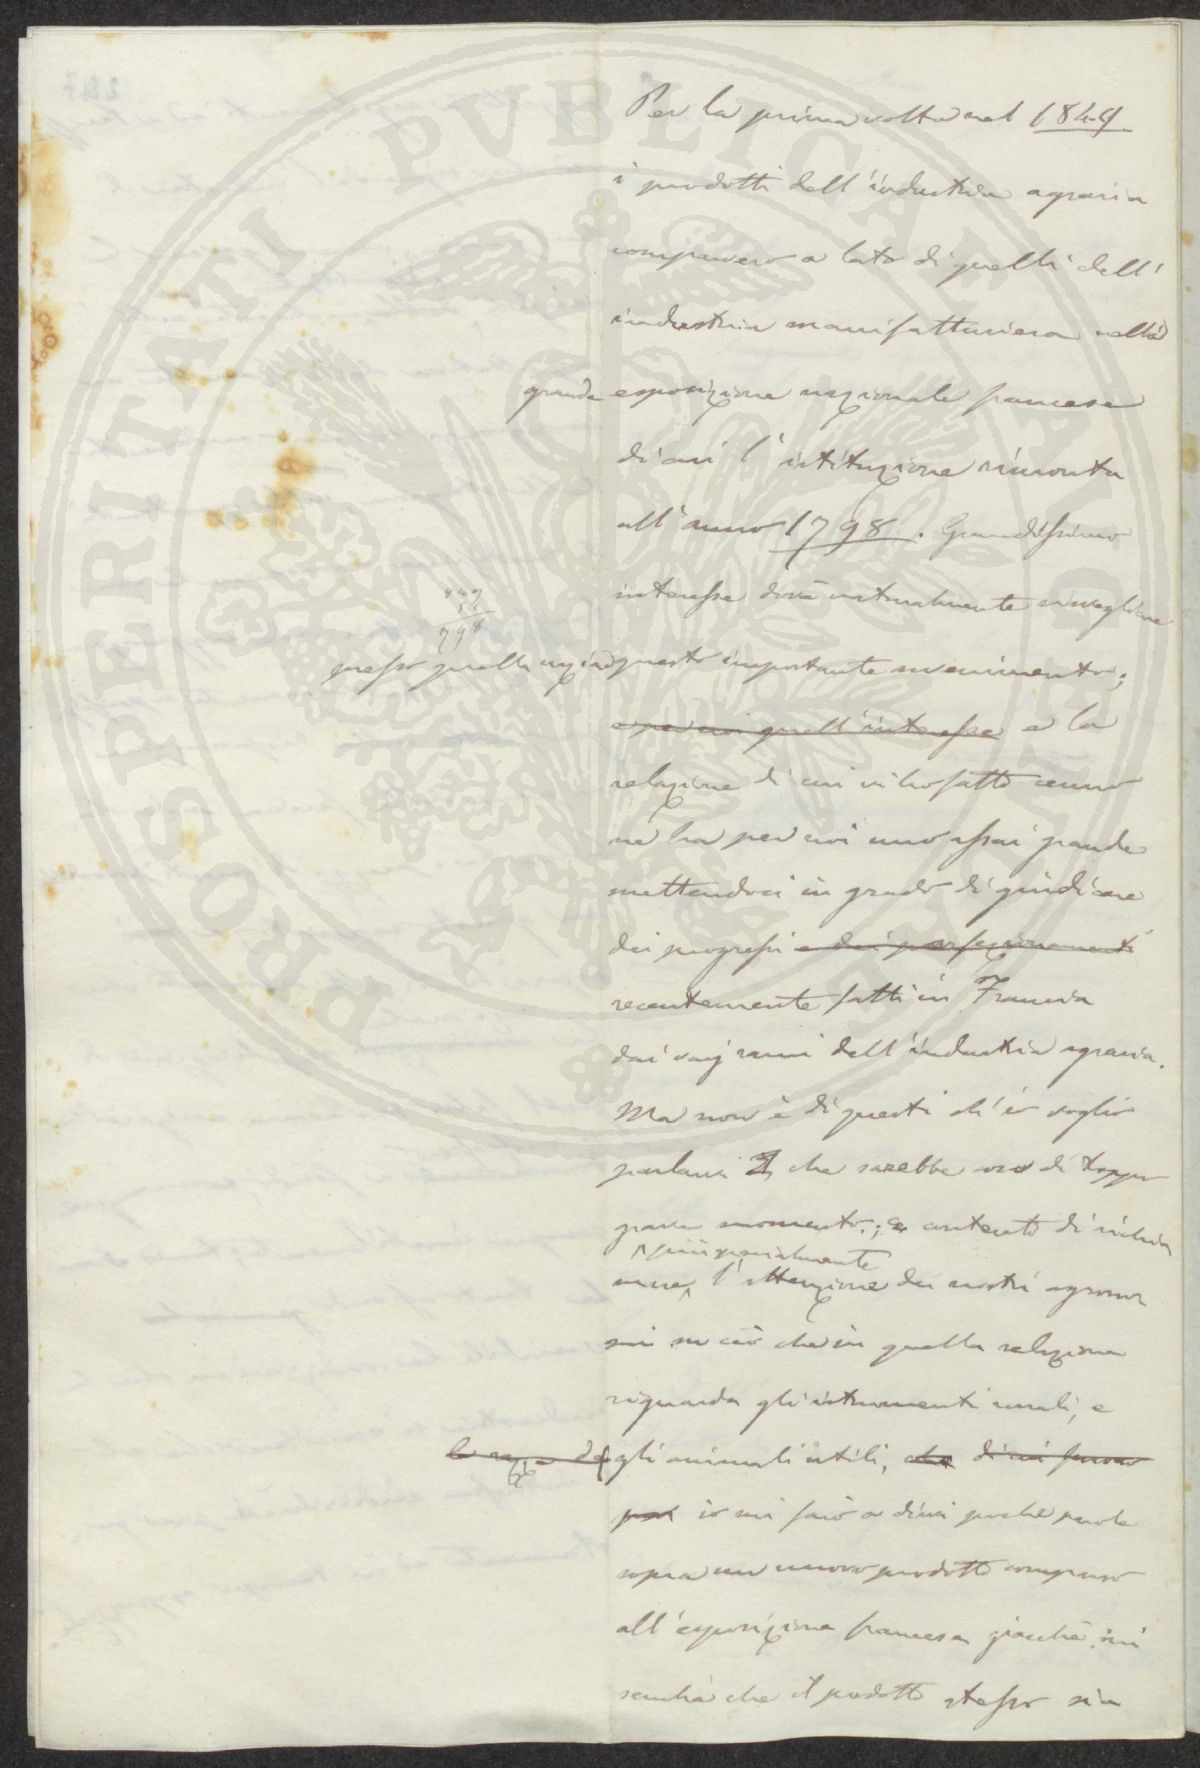 Per la prima volta nel 1849
i prodotti dell'industria agraria
comparvero a lato di quelli dell'
industria manifatturiera nella
grande esposizione nazionale francese
di cui l'istituzione rimonta
all'anno 1798. Grandissimo
interesse dovè naturalmente risvegliare
849
51
798
presso quella nazione questo importante avvenimento;
e per noi quell'interesse e la
relazione di cui vi ho fatto cenno
ne ha per noi uno assai grande
mettendoci in grado di giudicare
dei progressi e dei perfezionamenti
recentemente fatti in Francia
dai varj rami dell'industria agraria.
Ma non è di questi ch'io voglio
parlarvi che sarebbe cosa di troppo
grave momento; e contento di richia
più specialmente
mare l'attenzione dei nostri agrono
mi su ciò che in quella relazione
riguarda gli istrumenti rurali, e
le razze degli animali utili, che di cui
io mi farò a dirvi poche parole
sopra un nuovo prodotto comparso
all'esposizione francese giacchè mi
sembra che il prodotto stesso sia
PROSPERITATI PVBLICAE AVGENDAE